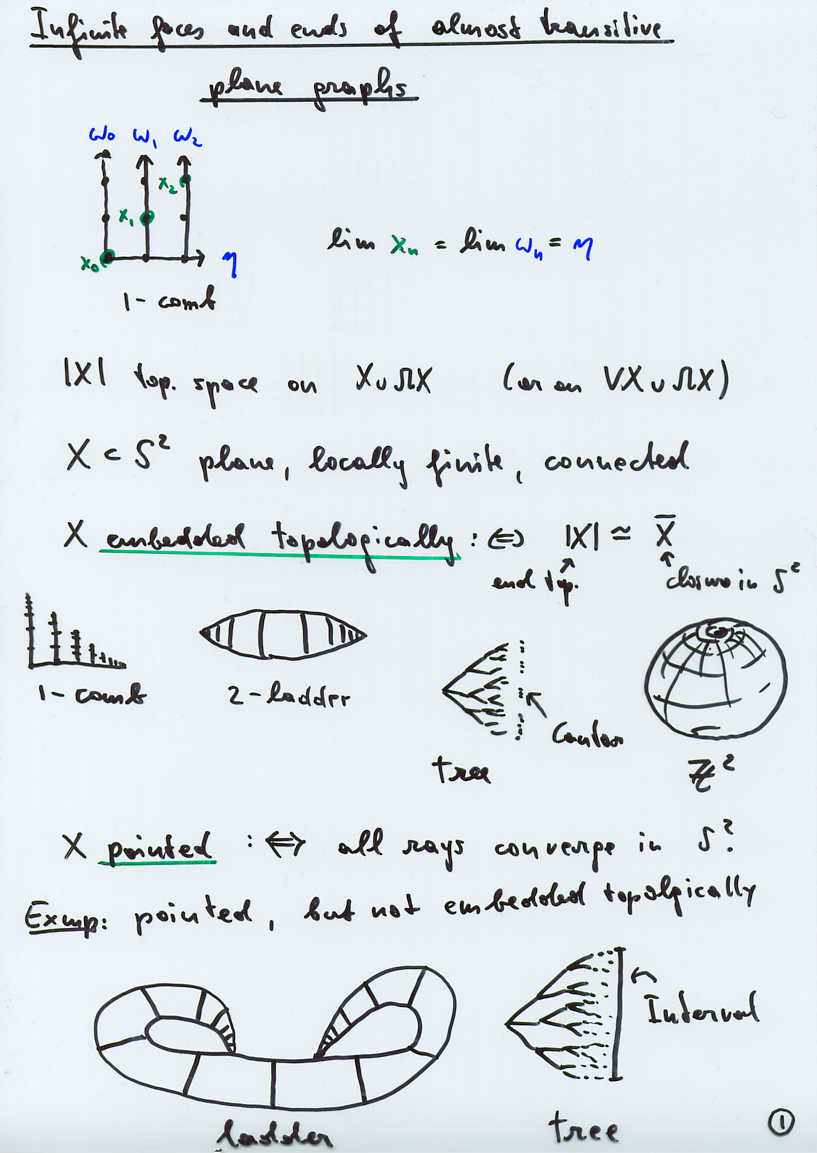 Infinite faces and ends of almost transitive
plane graphs
ω₀ ω₁ ω₂
x₂
x₁
x₀
η
1-comb
lim xₙ = lim ωₙ = η
|X| top. space on X∪ΩX (or on VX∪ΩX)
X ⊂ S² plane, locally finite, connected
X embedded topologically :⇔ |X| ≃ X̅
end top.
closure in S²
1-comb
2-ladder
tree
Cantor
ℤ²
X pointed :⇔ all rays converge in S².
Exmp: pointed, but not embedded topolgically
Interval
ladder
tree
1